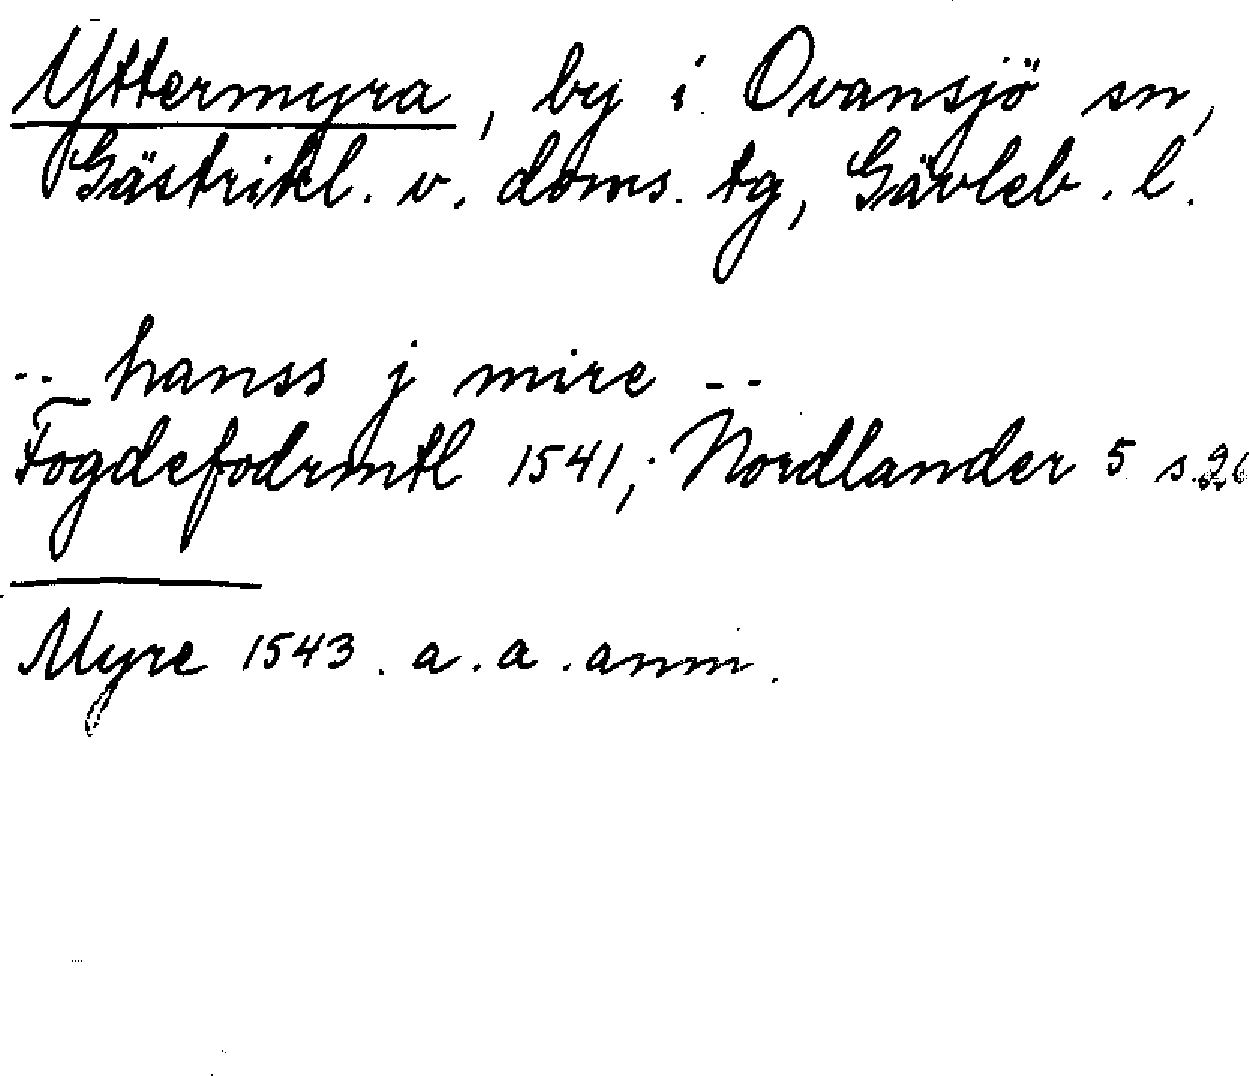 Yttermyra, by i Ovansjö sn,
Gästrikl. v. doms. tg, Gävleb. l.
-- hanss j mire --
Fogdefodrmtl 1541; Nordlander 5 s. 26
Myre 1543. a. a. anm.